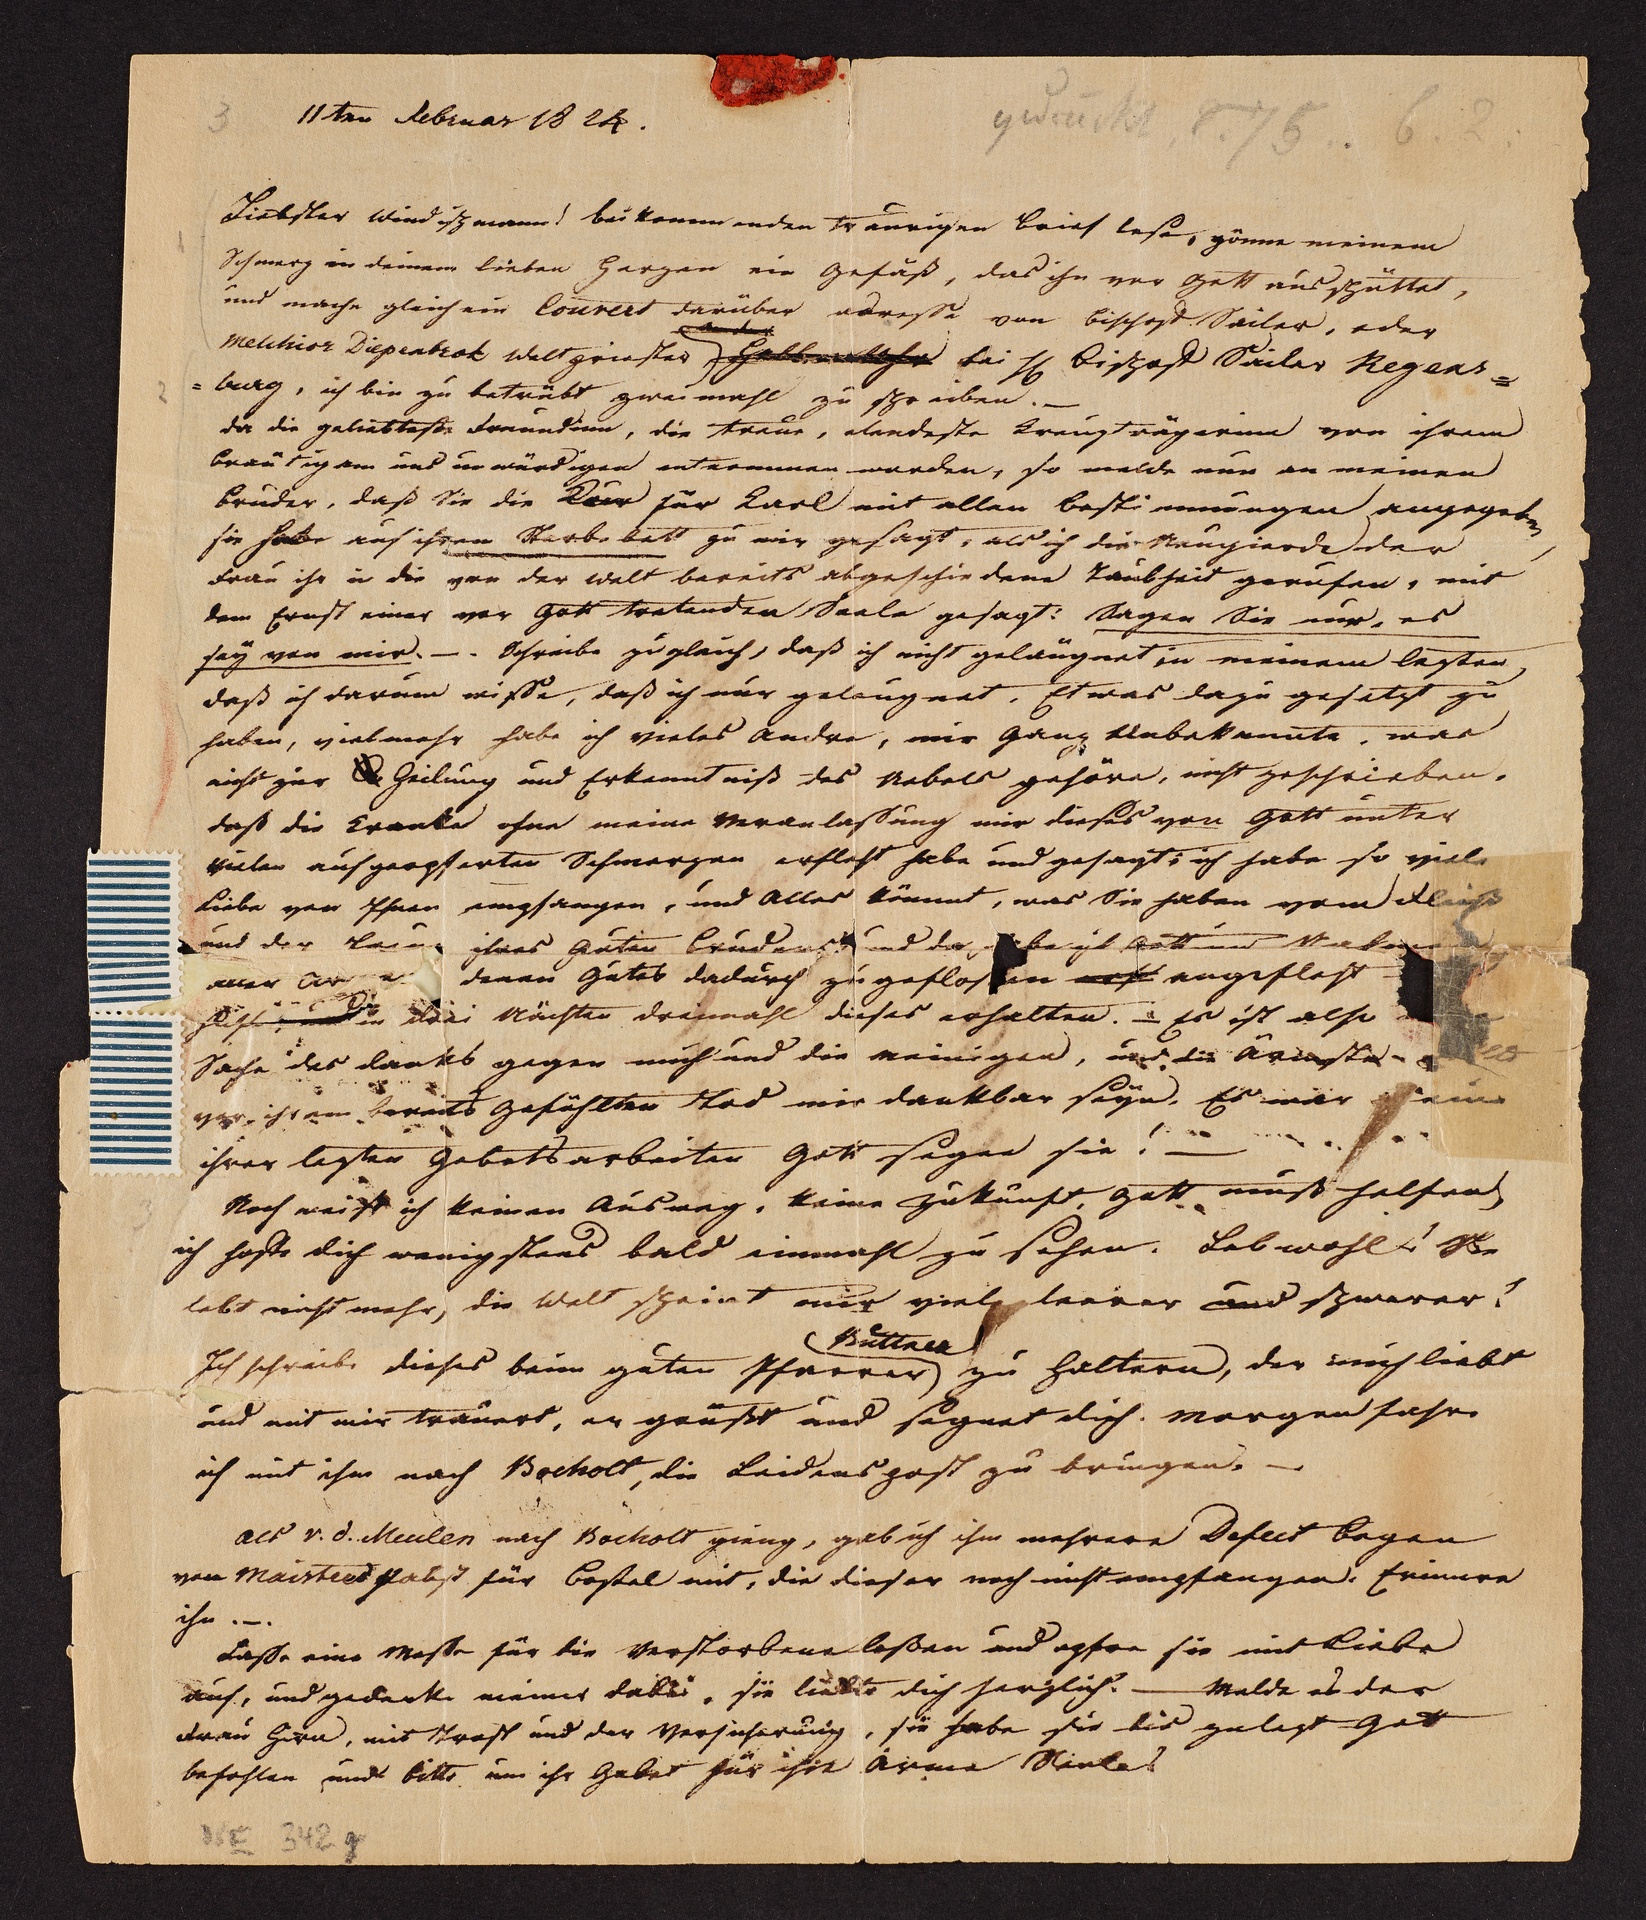 3
11ten Februar 1824.
gedruckt. S. 75 .. 6. 2.
Liebster Windischmann! beikommenden traurigen Brief lese, gönne meinem
Schmerz in deinem lieben Herzen ein Gefäß, das ihn vor Gott ausschüttet,
und mache gleich ein Couvert darüber adresse von Bischoff Sailer, oder
Melchior Diepenbrok Weltpriester bei H Bischoff Sailer Regens=
=burg, ich bin zu betrübt zweimahl zu schreiben. —
da die geliebteste Freundinn, die treue, elendeste Kreuzträgerinn von ihrem
Bräutigam uns unwürdigen entnommen worden, so melde nun an meinen
Bruder, daß Sie die Kur für Karl mit allen Bestimmungen angegeben,
sie habe auf ihrem Sterbebett zu mir gesagt, als ich die Neugierde der
Frau ihr in die von der Welt bereits abgeschiedene Taubheit gerufen, mit
dem Ernst einer vor Gott tretenden Seele gesagt: Sagen Sie nur, es
sey von mir. —. Schreibe zugleich, daß ich nicht geläugnet in meinem lezten,
daß ich darum wisse, daß ich nur geleugnet, Etwas dazu gesetzt zu
haben, vielmehr habe ich vieles Andre, mir ganz Unbekannte, was
nicht zur Heilung und Erkenntniß des Uebels gehöre, nicht geschrieben.
daß die Kranke ohne meine Veranlassung mir dieses von Gott unter
vielen aufgeopferten Schmerzen erfleht habe und gesagt: ich habe so viele
Liebe von Ihnen empfangen, und Alles kömmt, was Sie haben vom Fleiß
und der Treue ihres guten Bruders und da habe ich Gott im Nahmen
aller Armen denen Gutes dadurch zugeflossen angefleht
in drei Nächten dreimahl dieses erhalten. — Es ist also
Sache des Danks gegen mich und die meinigen, und die Ärmste
vor ihrem bereits gefühlten Tod mir dankbar seyn. Es war eine
ihrer lezten Gebetsarbeiten Gott segne sie! —
Noch weiß ich keinen Ausweg, keine Zukunft, Gott muß helfen,
ich hoffe dich wenigstens bald einmahl zu sehen. Leb wohl! Sie
lebt nicht mehr, die Welt scheint mir viel leerer und schwerer!
Büttner
Ich schreibe dieses beim guten Pfarrer zu Haltern, der mich liebt
und mit mir trauert, er grüßt und segnet dich. Morgen fahre
ich mit ihm nach Bocholt, die Leidenspost zu bringen. —
als v. d. Meulen nach Bocholt gieng, gab ich ihm mehrere Defect bogen
von für Bostel mit, die dieser noch nicht empfangen. Erinnre
ihn. —.
Lasse eine Messe für die Verstorbene leßen und opfre sie mit Liebe
auf, und gedenke meiner dabei, sie liebte dich herzlich. — Melde es der
Frau Hirn, mit Trost und der Versicherung, sie habe sie bis zulezt Gott
befohlen und bitte um ihr Gebet für ihre Arme Seele!
342 g